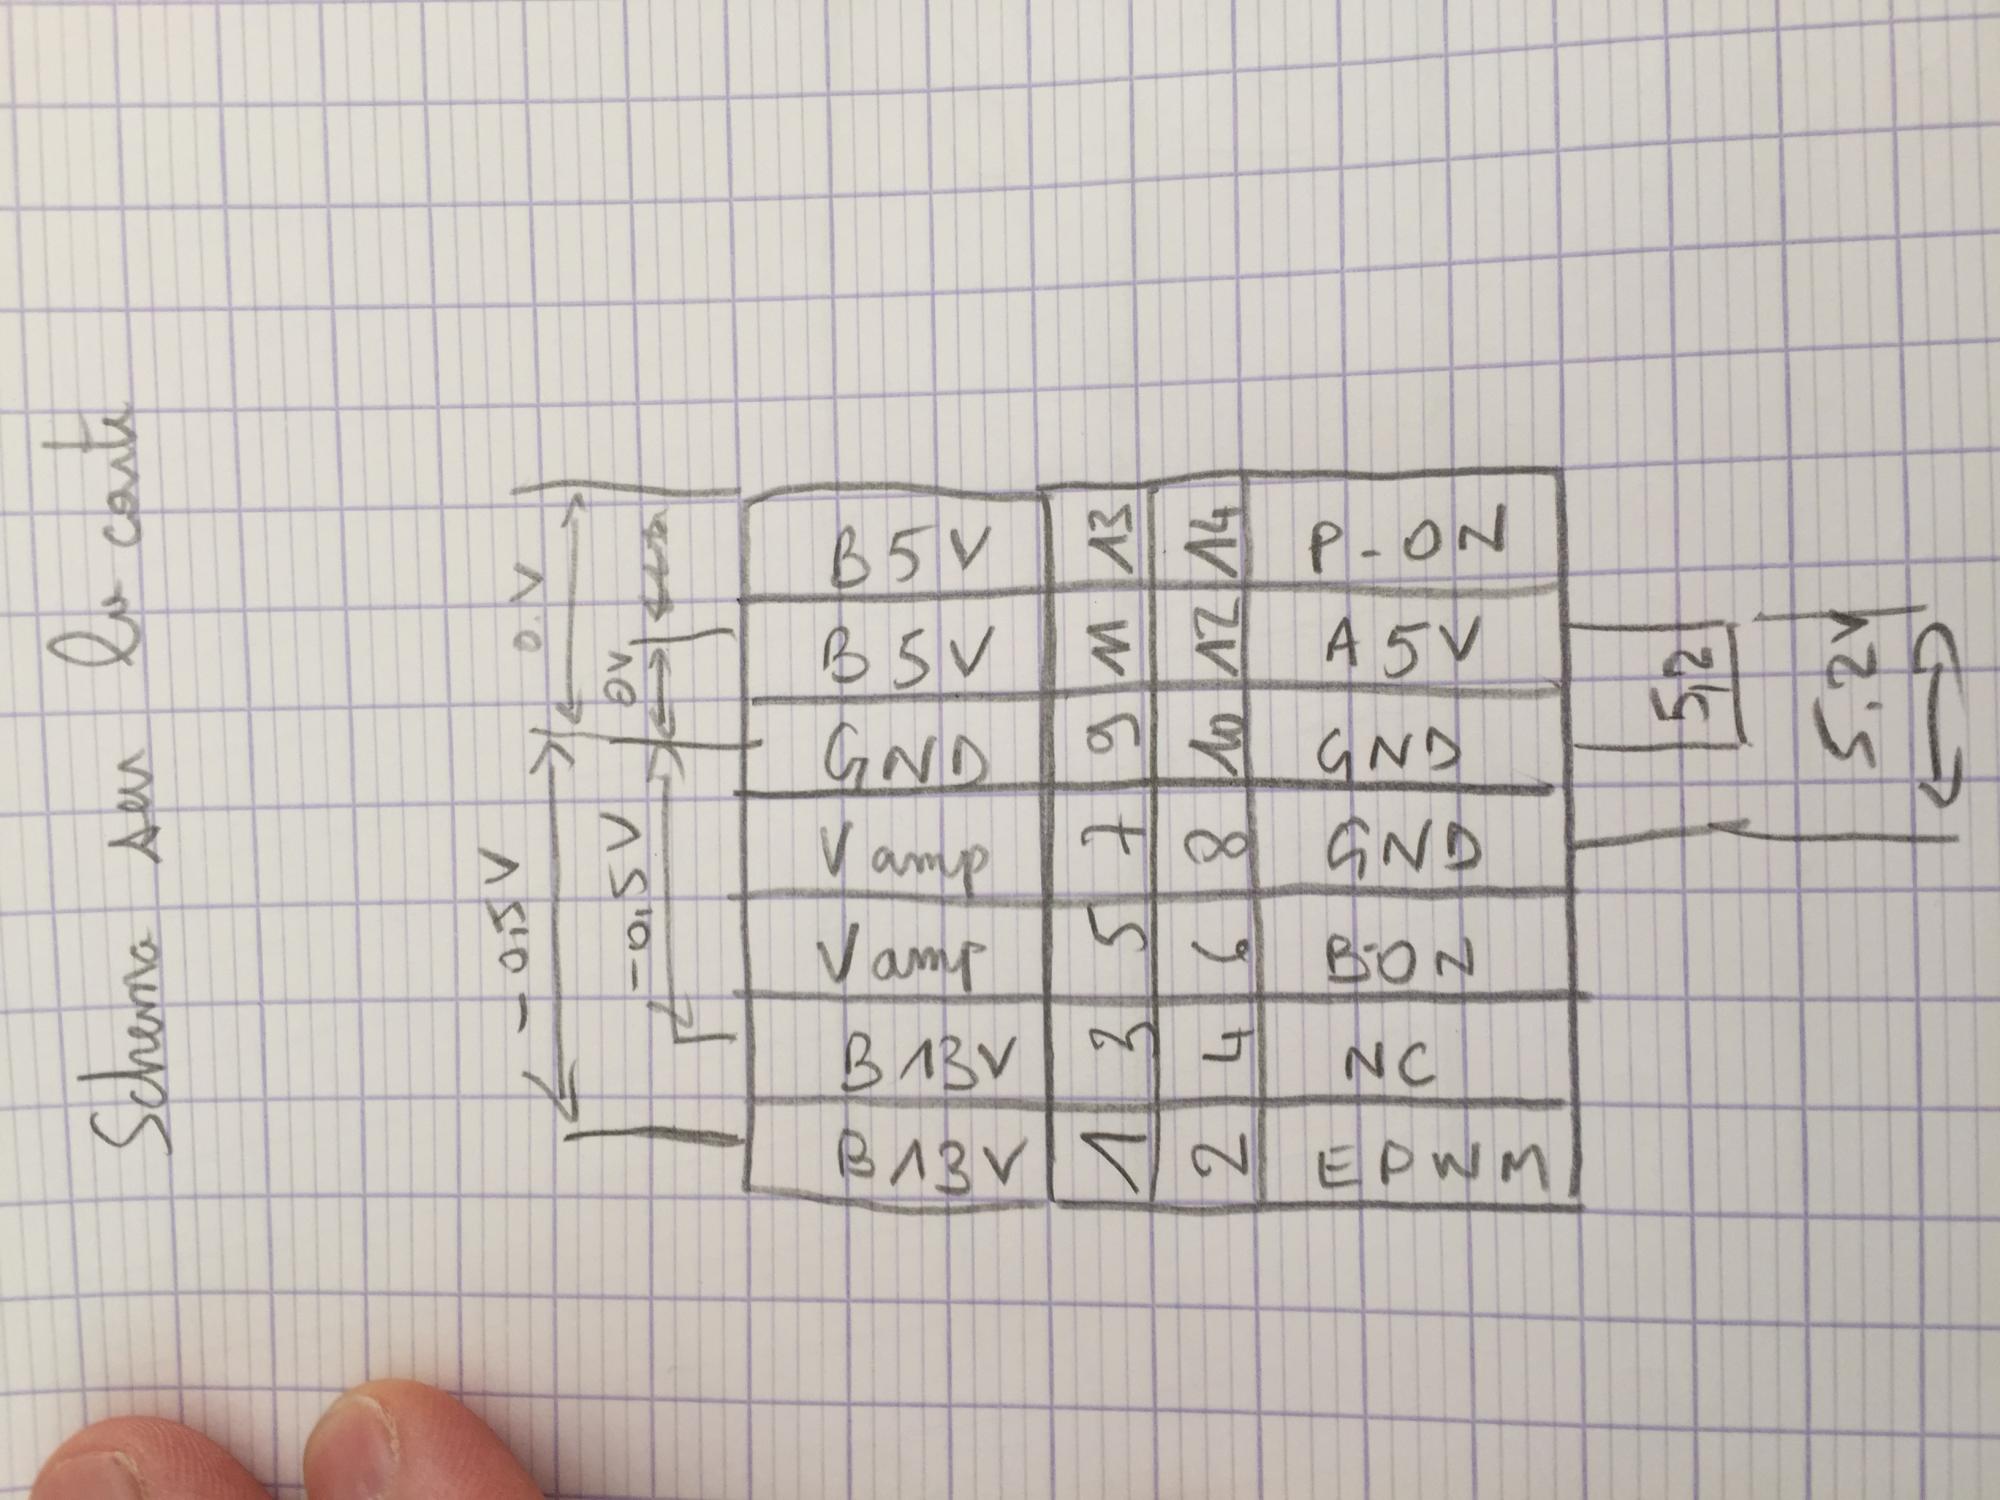 Schema sur la carte
B5V 13 14 P-ON
B5V 11 12 A5V
GND 9 10 GND
Vamp 7 8 GND
Vamp 5 6 B-ON
B13V 3 4 NC
B13V 1 2 EPWM
0.V
0V
-0,5V
-0,5V
5,2
5.2V